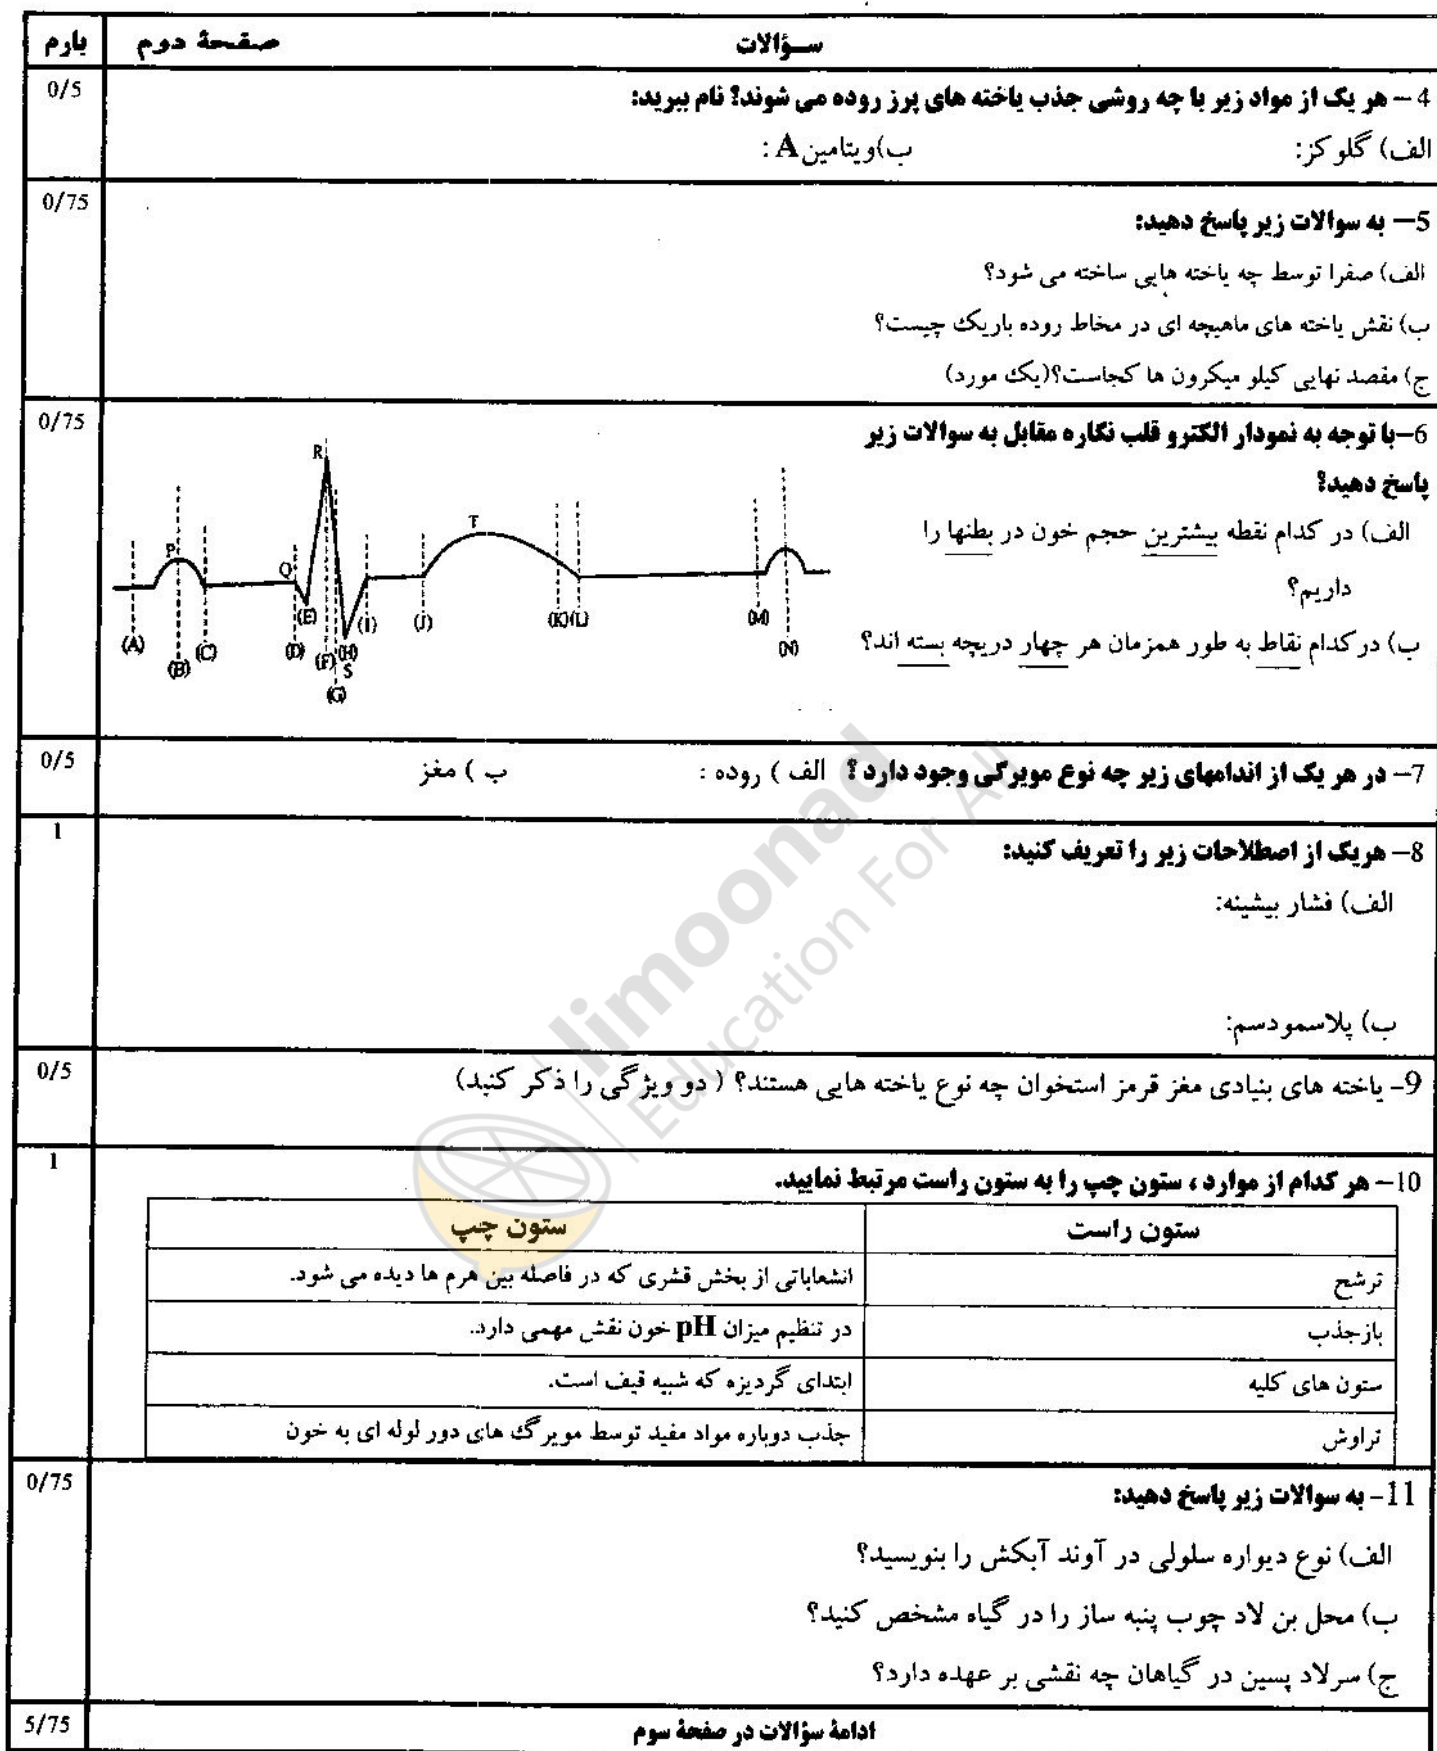 بارم صفحهٔ دوم سؤالات
0/5
4 – هر یک از مواد زیر با چه روشی جذب یاخته های پرز روده می شوند؟ نام ببرید:
الف) گلوکز: ب)ویتامین A :
0/75
5– به سوالات زیر پاسخ دهید:
الف) صفرا توسط چه یاخته هایی ساخته می شود؟
ب) نقش یاخته های ماهیچه ای در مخاط روده باریک چیست؟
ج) مقصد نهایی کیلو میکرون ها کجاست؟(یک مورد)
0/75
6–با توجه به نمودار الکترو قلب نگاره مقابل به سوالات زیر
پاسخ دهید؟
الف) در کدام نقطه بیشترین حجم خون در بطنها را
داریم؟
ب) درکدام نقاط به طور همزمان هر چهار دریچه بسته اند؟
R
P
Q
T
S
(A) (B) (C) (D) (E) (F) (G) (H) (I) (J) (K) (L) (M) (N)
0/5
7– در هر یک از اندامهای زیر چه نوع مویرگی وجود دارد ؟ الف ) روده : ب ) مغز
1
8– هریک از اصطلاحات زیر را تعریف کنید:
الف) فشار بیشینه:
ب) پلاسمودسم:
0/5
9- یاخته های بنیادی مغز قرمز استخوان چه نوع یاخته هایی هستند؟ ( دو ویژگی را ذکر کنید)
1
10– هر کدام از موارد ، ستون چپ را به ستون راست مرتبط نمایید.
ستون راست ستون چپ
ترشح انشعاباتی از بخش قشری که در فاصله بین هرم ها دیده می شود.
بازجذب در تنظیم میزان pH خون نقش مهمی دارد.
ستون های کلیه ابتدای گردیزه که شبیه قیف است.
تراوش جذب دوباره مواد مفید توسط مویرگ های دور لوله ای به خون
0/75
11- به سوالات زیر پاسخ دهید:
الف) نوع دیواره سلولی در آوند آبکش را بنویسید؟
ب) محل بن لاد چوب پنبه ساز را در گیاه مشخص کنید؟
ج) سرلاد پسین در گیاهان چه نقشی بر عهده دارد؟
5/75
ادامهٔ سؤالات در صفحهٔ سوم
limoonad
Education For All